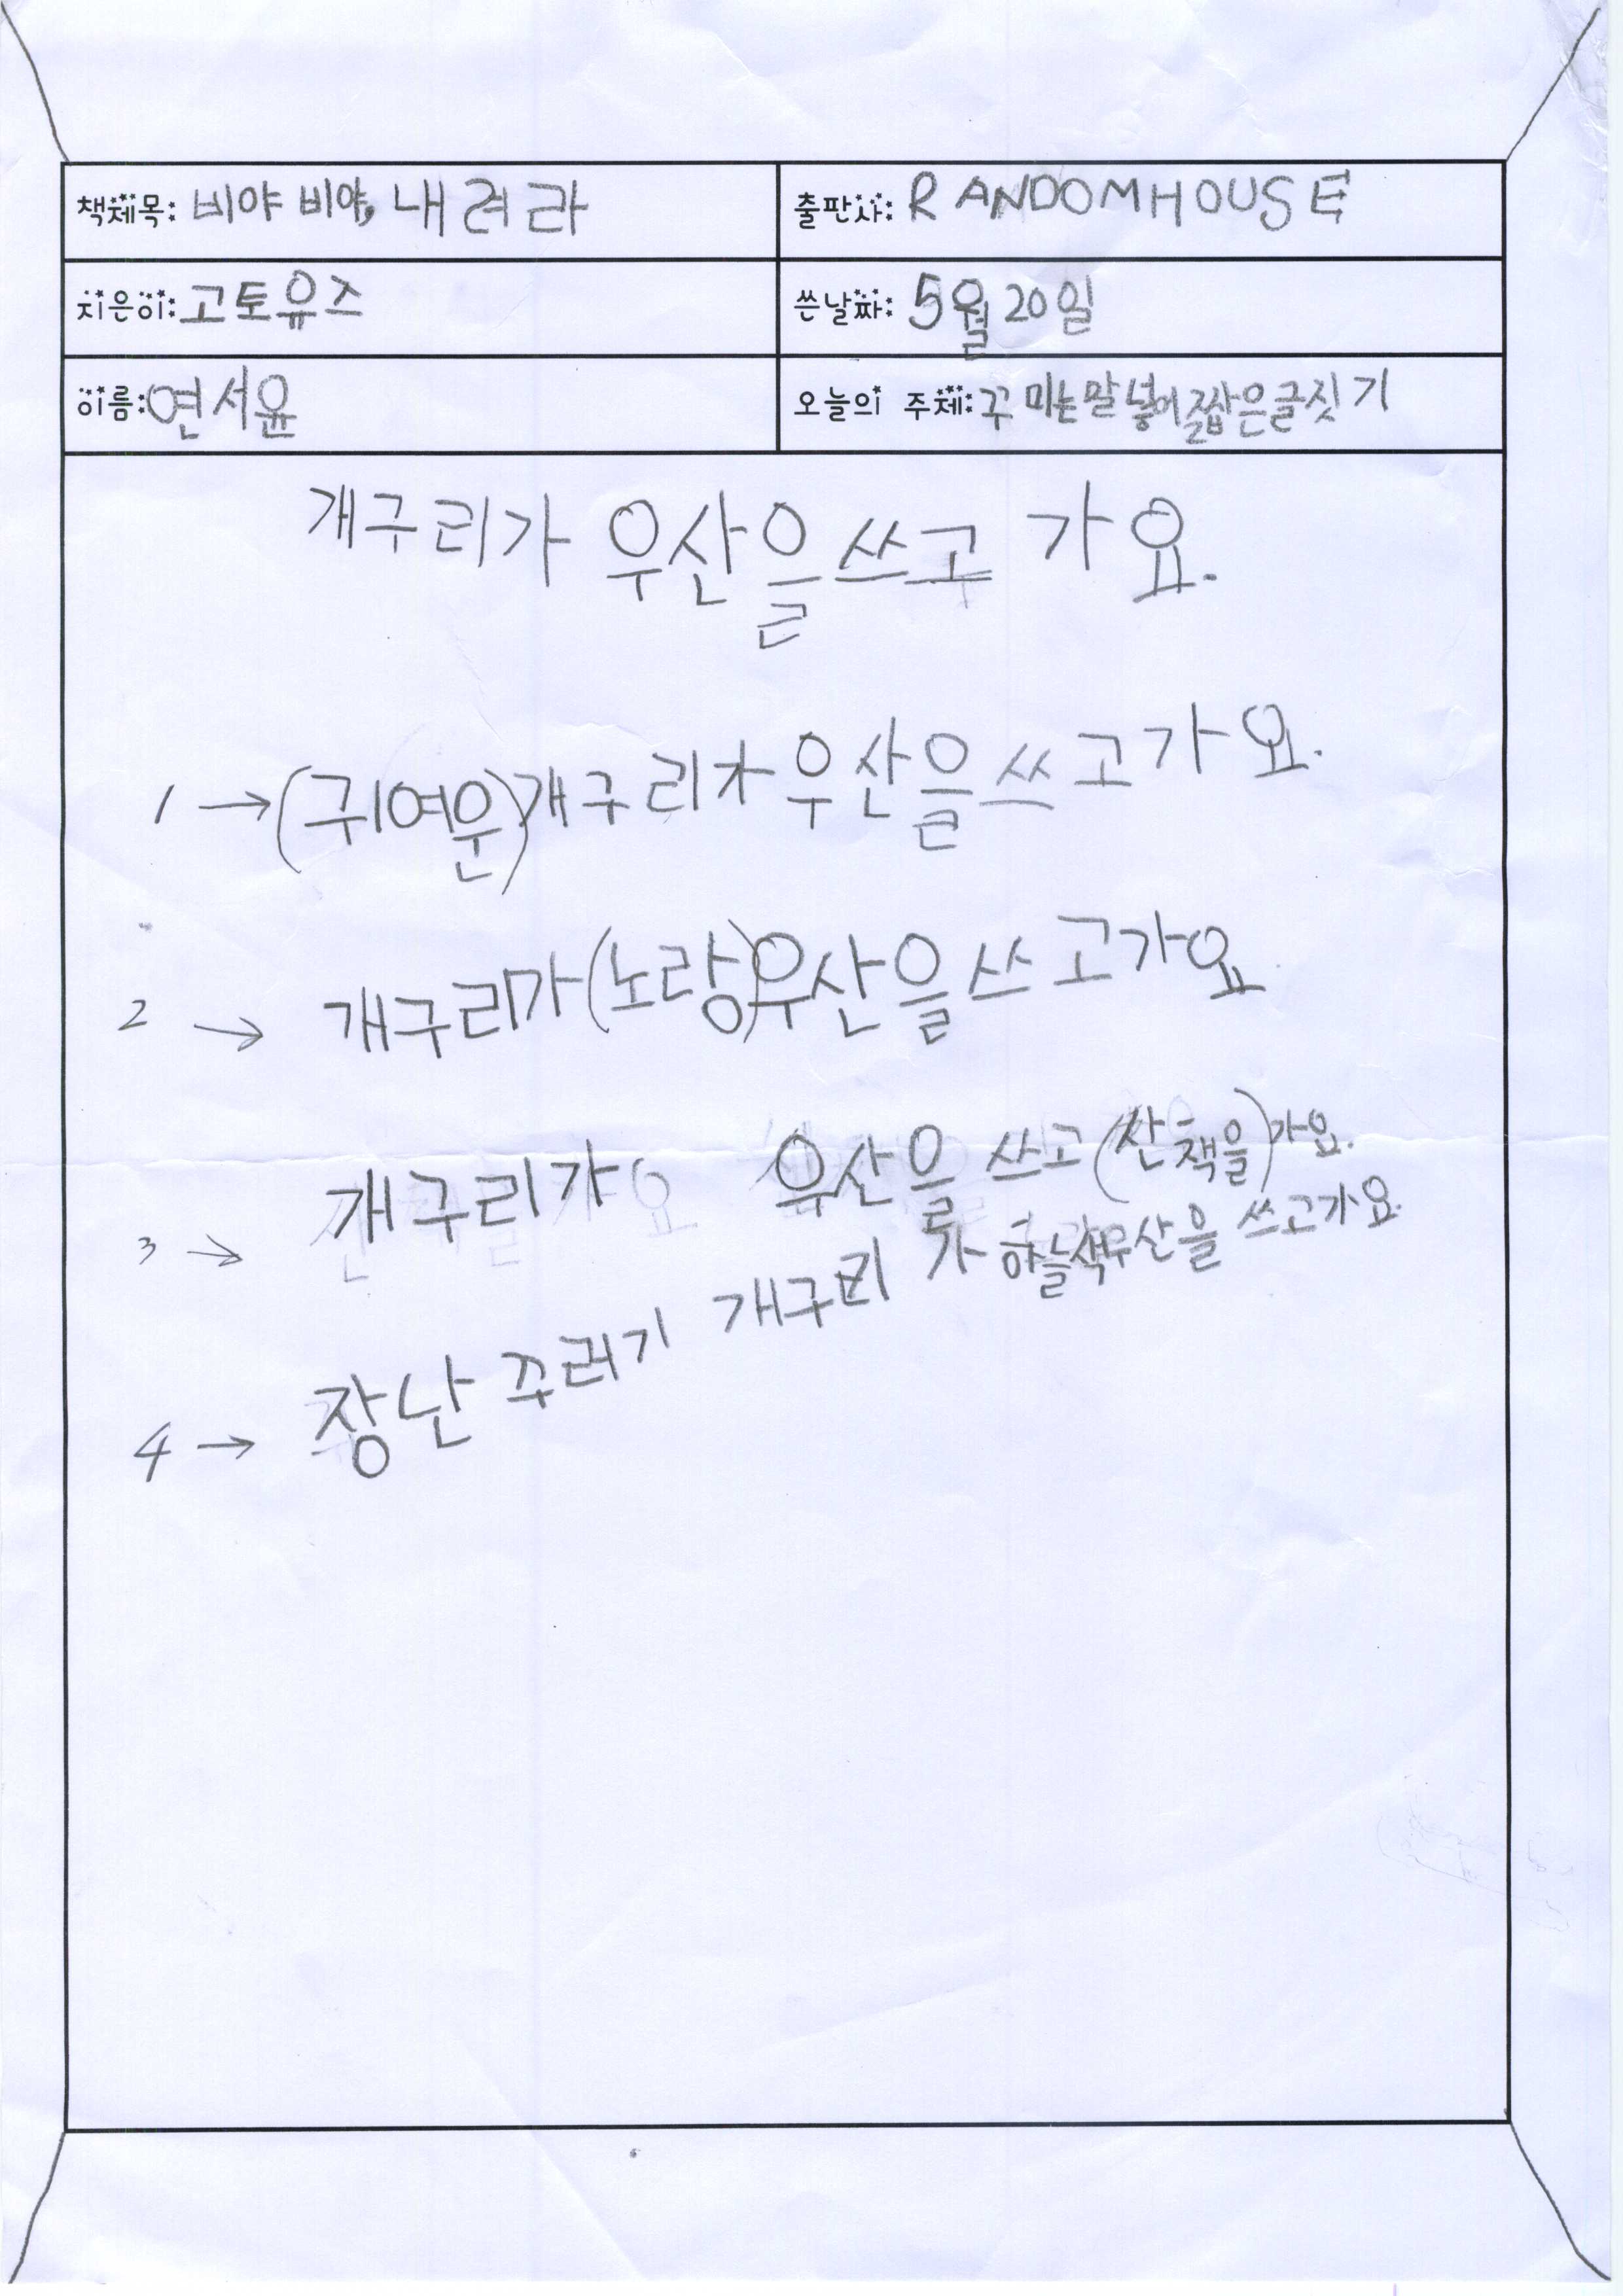 책제목: 비야 비야, 내려라
출판사: RANDOMHOUSE
지은이: 고토유즈
쓴날짜: 5월 20일
이름: 연서윤
오늘의 주제: 꾸미는말넣어짧은글짓기
개구리가 우산을쓰고 가요.
1 → (귀여운)개구리가우산을쓰고가요.
2 → 개구리가(노랑)우산을쓰고가요
3 → 개구리가 우산을 쓰고(산책을)가요.
4 → 장난꾸러기 개구리가 하늘색우산을 쓰고가요.